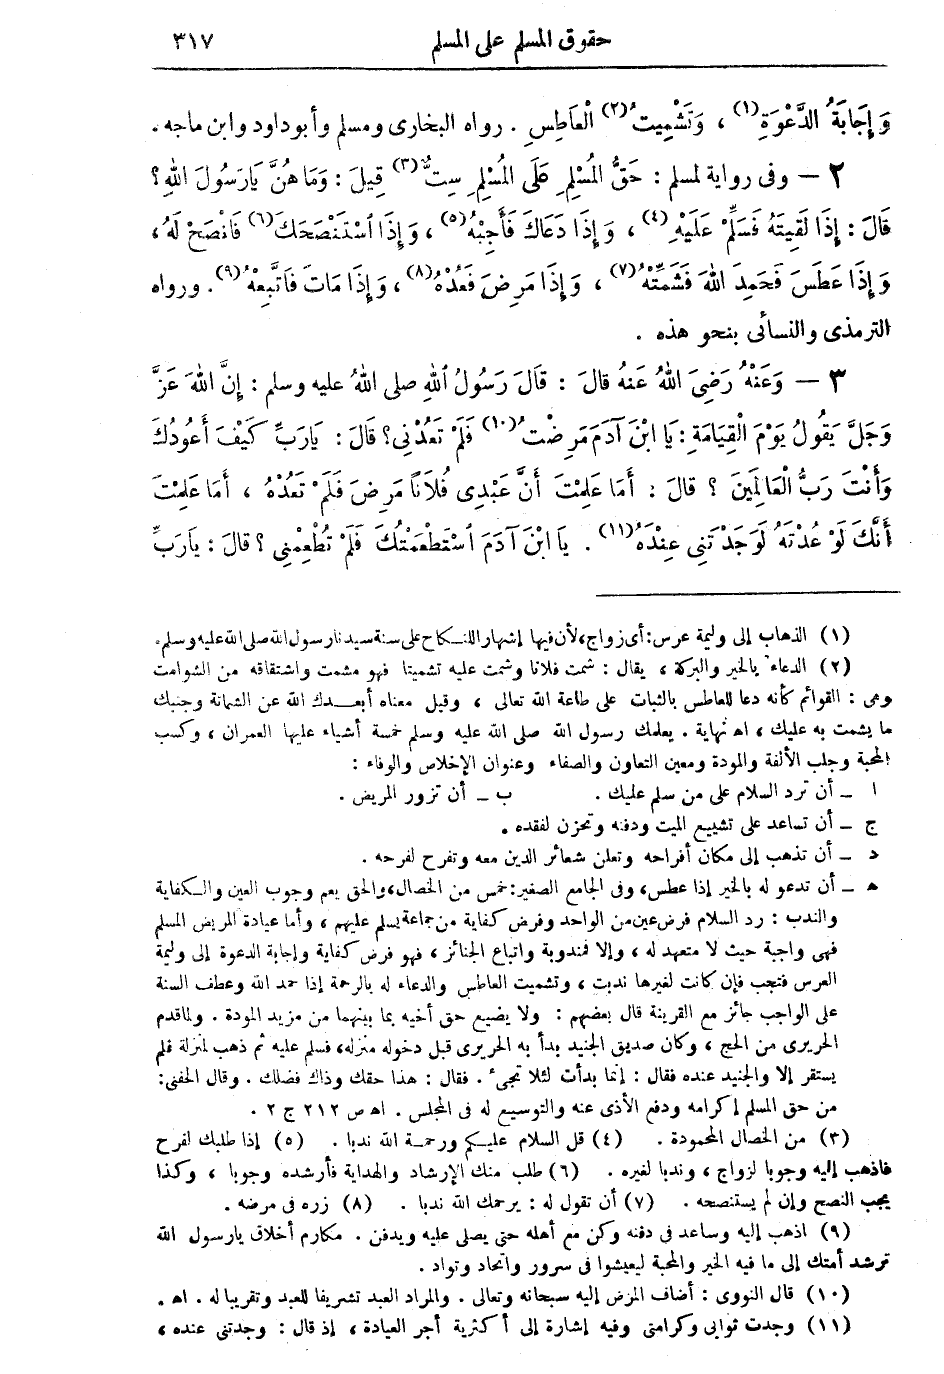 حقوق المسلم على المسلم ٣١٧
وَإِجَابَةُ الدَّعْوَةِ(١) ، وَتَشْمِيتُ(٢) الْعَاطِسِ . رواه البخارى ومسلم وأبو داود وابن ماجه .
٢ — وفى رواية لمسلم : حَقُّ الْمُسْلِمِ عَلَى الْمُسْلِمِ سِتٌّ(٣) قِيلَ : وَمَا هُنَّ يَارَسُولَ اللهِ ؟
قَالَ : إِذَا لَقِيتَهُ فَسَلِّمْ عَلَيْهِ(٤) ، وَإِذَا دَعَاكَ فَأَجِبْهُ(٥) ، وَإِذَا اسْتَنْصَحَكَ(٦) فَانْصَحْ لَهُ ،
وَإِذَا عَطَسَ فَحَمِدَ اللهَ فَشَمِّتْهُ(٧) ، وَإِذَا مَرِضَ فَعُدْهُ(٨) ، وَإِذَا مَاتَ فَاتَّبِعْهُ(٩) . ورواه
الترمذى والنسائى بنحو هذه .
٣ — وَعَنْهُ رَضِىَ اللهُ عَنْهُ قالَ : قَالَ رَسُولُ اللهِ صلى اللهُ عليه وسلم : إِنَّ اللهَ عَزَّ
وَجَلَّ يَقُولُ يَوْمَ الْقِيَامَةِ : يَا ابْنَ آدَمَ مَرِضْتُ(١٠) فَلَمْ تَعُدْنِى ؟ قَالَ : يَارَبِّ كَيْفَ أَعُودُكَ
وَأَنْتَ رَبُّ الْعَالَمِينَ ؟ قالَ : أَمَا عَلِمْتَ أَنَّ عَبْدِى فُلَانًا مَرِضَ فَلَمْ تَعُدْهُ ، أَمَا عَلِمْتَ
أَنَّكَ لَوْ عُدْتَهُ لَوَجَدْتَنِى عِنْدَهُ(١١) . يَا ابْنَ آدَمَ اسْتَطْعَمْتُكَ فَلَمْ تُطْعِمْنِى ؟ قالَ : يَارَبِّ
(١) الذهاب إلى وليمة عرس : أى زواج ، لأن فيها إشهار النكاح على سنة سيدنا رسول الله صلى الله عليه وسلم .
(٢) الدعاء بالخير والبركة ، يقال : شمت فلانا وشمت عليه تشميتا فهو مشمت واشتقاقه من الشوامت
وهى : القوائم كأنه دعا للعاطس بالثبات على طاعة الله تعالى ، وقيل معناه أبعدك الله عن الشماتة وجنبك
ما يشمت به عليك ، اه نهاية . يعلمك رسول الله صلى الله عليه وسلم خمسة أشياء عليها العمران ، وكسب
المحبة وجلب الألفة والمودة ومعين التعاون والصفاء وعنوان الإخلاص والوفاء :
ا — أن ترد السلام على من سلم عليك . ب — أن تزور المريض .
ج — أن تساعد على تشييع الميت ودفنه وتحزن لفقده .
د — أن تذهب إلى مكان أفراحه وتعلن شعائر الدين معه وتفرح لفرحه .
ه — أن تدعو له بالخير إذا عطس ، وفى الجامع الصغير : خمس من الخصال ، والحق يعم وجوب العين والكفاية
والندب : رد السلام فرض عين من الواحد وفرض كفاية من جماعة يسلم عليهم ، وأما عيادة المريض المسلم
فهى واجبة حيث لا متعهد له ، وإلا فمندوبة واتباع الجنائز ، فهو فرض كفاية وإجابة الدعوة إلى وليمة
العرس فتجب فإن كانت لغيرها ندبت ، وتشميت العاطس والدعاء له بالرحمة إذا حمد الله وعطف السنة
على الواجب جائز مع القرينة قال بعضهم : ولا يضيع حق أخيه بما بينهما من مزيد المودة . ولما قدم
الحريرى من الحج ، وكان صديق الجنيد بدأ به الحريرى قبل دخوله منزله ، فسلم عليه ثم ذهب لمنزلة فلم
يستقر إلا والجنيد عنده فقال : إنما بدأت لئلا تجىء . فقال : هذا حقك وذاك فضلك . وقال الحفنى :
من حق المسلم إكرامه ودفع الأذى عنه والتوسيع له فى المجلس . اه ص ٢١٢ ج ٢ .
(٣) من الخصال المحمودة . (٤) قل السلام عليكم ورحمة الله ندبا . (٥) إذا طلبك لفرح
فاذهب إليه وجوبا لزواج ، وندبا لغيره . (٦) طلب منك الإرشاد والهداية فأرشده وجوبا ، وكذا
يجب النصح وإن لم يستنصحه . (٧) أن تقول له : يرحمك الله ندبا . (٨) زره فى مرضه .
(٩) اذهب إليه وساعد فى دفنه وكن مع أهله حتى يصلى عليه ويدفن . مكارم أخلاق يارسول الله
ترشد أمتك إلى ما فيه الخير والمحبة ليعيشوا فى سرور واتحاد وتواد .
(١٠) قال النووى : أضاف المرض إليه سبحانه وتعالى . والمراد العبد تشريفا للعبد وتقريبا له . اه .
(١١) وجدت ثوابى وكرامتى وفيه إشارة إلى أكثرية أجر العيادة ، إذ قال : وجدتنى عنده ،